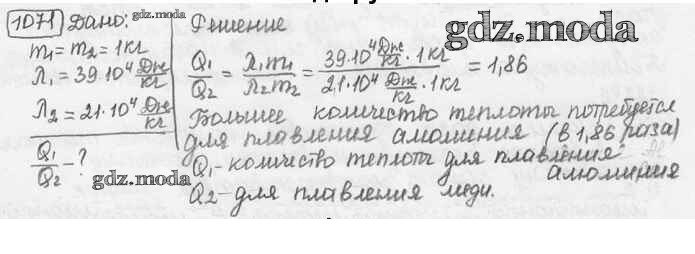 1071 Дано: gdz.moda Решение gdz.moda
m₁ = m₂ = 1кг
λ₁ = 39·10⁴ Дж/кг
λ₂ = 21·10⁴ Дж/кг
Q₁/Q₂ - ?
gdz.moda
Q₁/Q₂ = λ₁m₁/λ₂m₂ = 39·10⁴ Дж/кг · 1кг / 21·10⁴ Дж/кг · 1кг = 1,86
Большее количество теплоты потребуется
для плавления алюминия (в 1,86 раза)
Q₁ - количество теплоты для плавления
алюминия
Q₂ - для плавления меди.